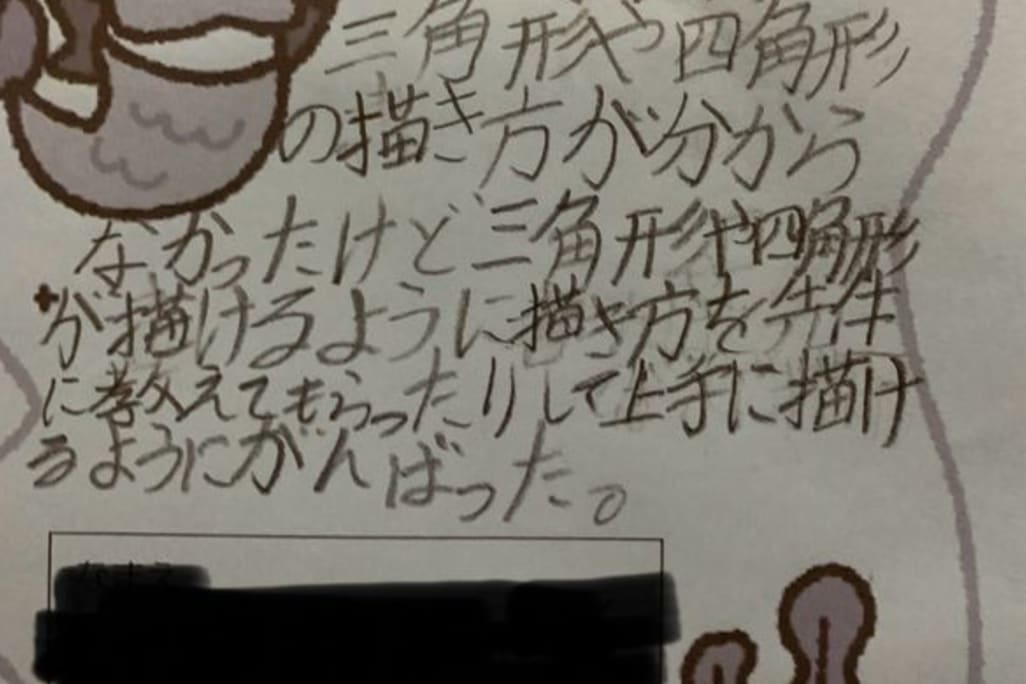 三角形や四角形
の描き方が分から
なかったけど三角形や四角形
が描けるように描き方を先生
に教えてもらったりして上手に描け
るようにがんばった。